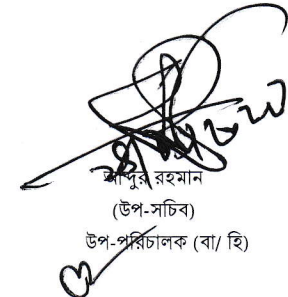 আব্দুর রহমান
(উপ-সচিব)
উপ-পরিচালক (বা/ হি)